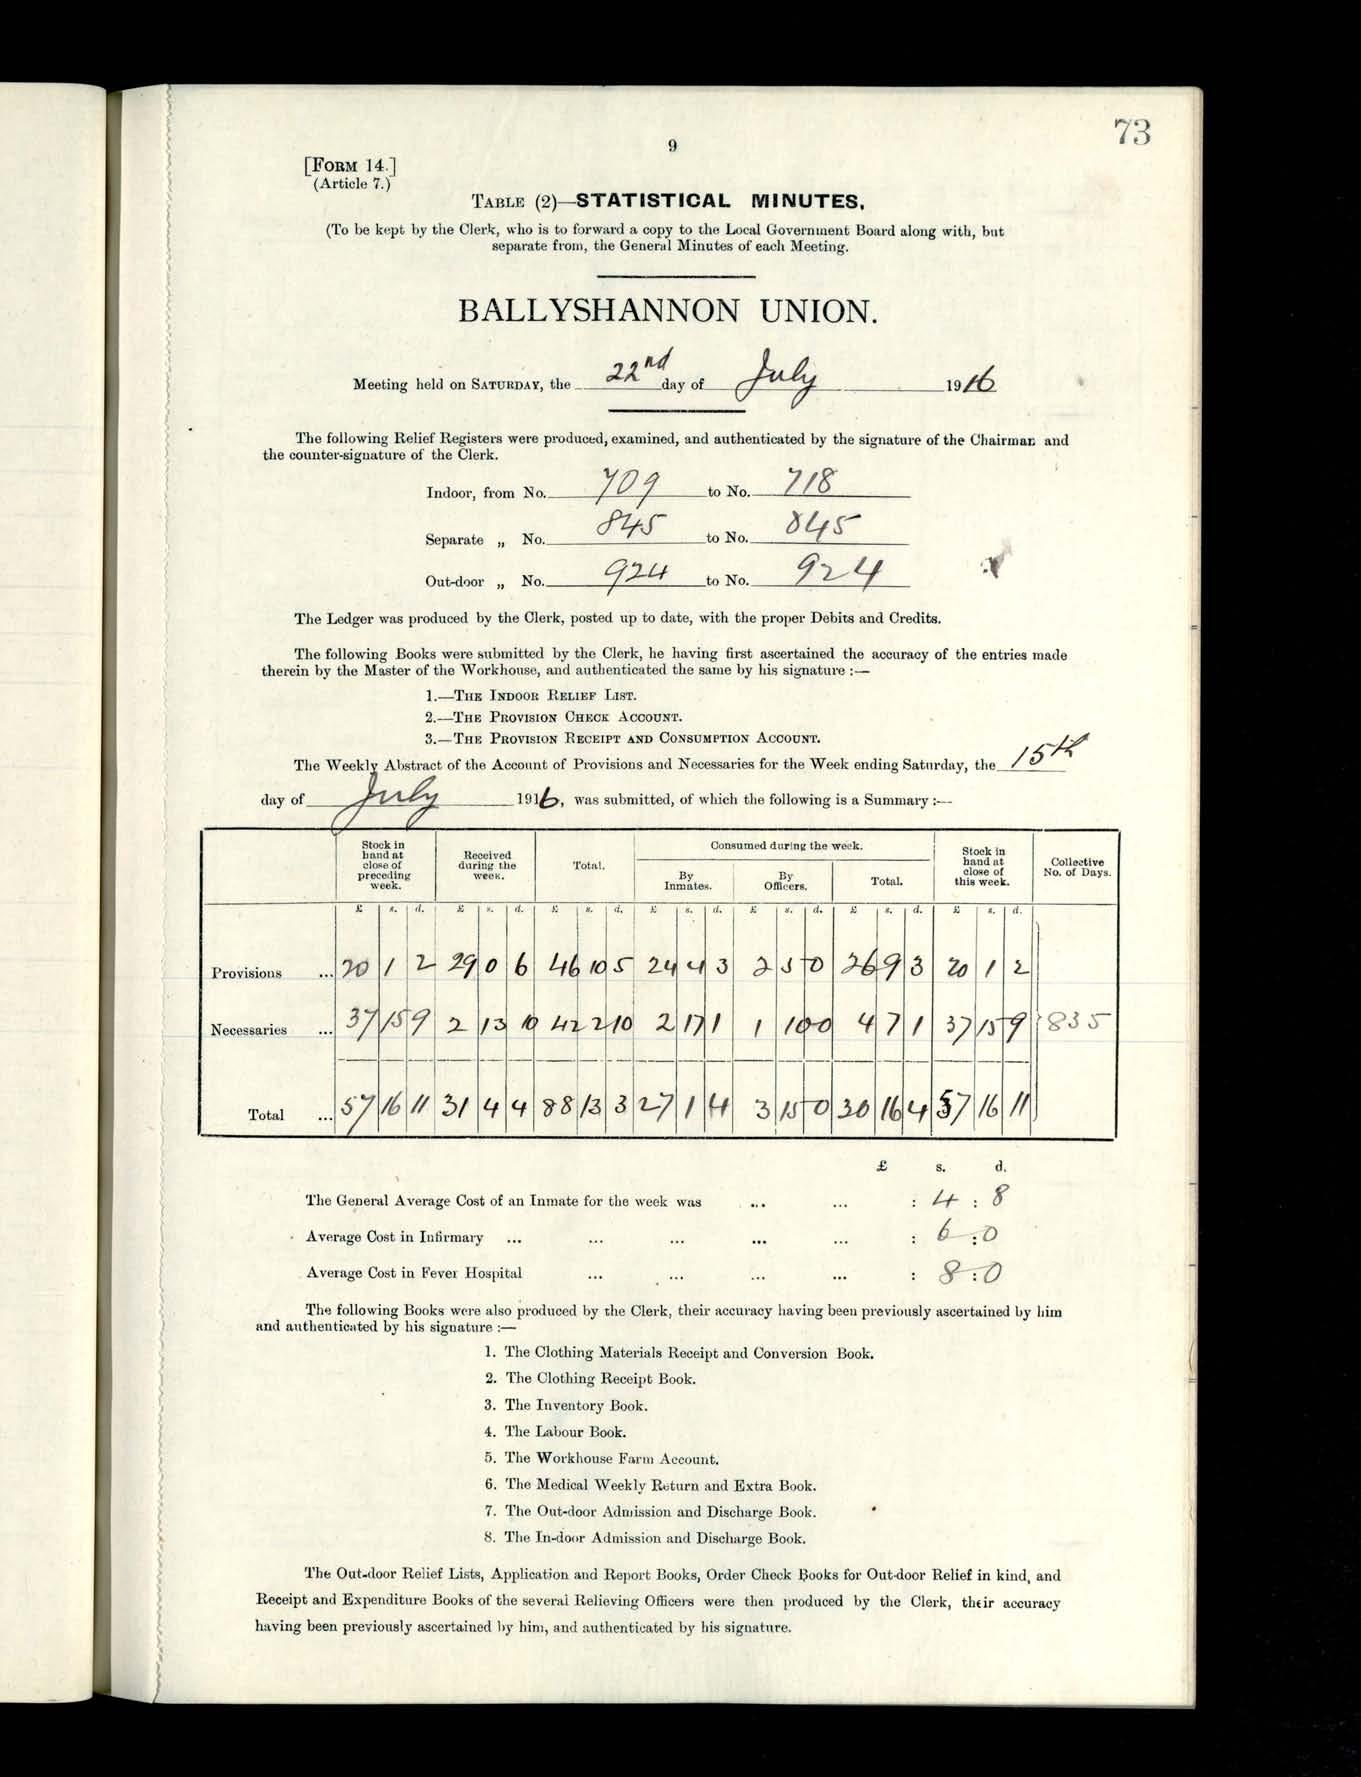 73
9
[FORM 14.]
(Article 7.)
TABLE (2)—STATISTICAL MINUTES.
(To be kept by the Clerk, who is to forward a copy to the Local Government Board along with, but
separate from, the General Minutes of each Meeting.
BALLYSHANNON UNION.
Meeting held on SATURDAY, the 22nd day of July 1916
The following Relief Registers were produced, examined, and authenticated by the signature of the Chairman and
the counter-signature of the Clerk.
Indoor, from No. 709 to No. 718
Separate „ No. 845 to No. 845
Out-door „ No. 924 to No. 924
The Ledger was produced by the Clerk, posted up to date, with the proper Debits and Credits.
The following Books were submitted by the Clerk, he having first ascertained the accuracy of the entries made
therein by the Master of the Workhouse, and authenticated the same by his signature :—
1.—THE INDOOR RELIEF LIST.
2.—THE PROVISION CHECK ACCOUNT.
3.—THE PROVISION RECEIPT AND CONSUMPTION ACCOUNT.
The Weekly Abstract of the Account of Provisions and Necessaries for the Week ending Saturday, the 15th
day of July 1916, was submitted, of which the following is a Summary :—
Stock in hand at close of preceding week. Received during the week. Total. Consumed during the week. Stock in hand at close of this week. Collective No. of Days.
By Inmates. By Officers. Total.
£ s. d. £ s. d. £ s. d. £ s. d. £ s. d. £ s. d. £ s. d.
Provisions ... 20 1 2 29 0 6 46 10 5 24 4 3 2 5 0 26 9 3 20 1 2
Necessaries ... 37 15 9 2 13 10 42 2 10 2 17 1 1 10 0 4 7 1 37 15 9 835
Total ... 57 16 11 31 4 4 88 13 3 27 1 4 3 15 0 30 16 4 57 16 11
£ s. d.
The General Average Cost of an Inmate for the week was ... ... : 4 : 8
Average Cost in Infirmary ... ... ... ... ... : 6 : 0
Average Cost in Fever Hospital ... ... ... ... : 8 : 0
The following Books were also produced by the Clerk, their accuracy having been previously ascertained by him
and authenticated by his signature :—
1. The Clothing Materials Receipt and Conversion Book.
2. The Clothing Receipt Book.
3. The Inventory Book.
4. The Labour Book.
5. The Workhouse Farm Account.
6. The Medical Weekly Return and Extra Book.
7. The Out-door Admission and Discharge Book.
8. The In-door Admission and Discharge Book.
The Out-door Relief Lists, Application and Report Books, Order Check Books for Out-door Relief in kind, and
Receipt and Expenditure Books of the several Relieving Officers were then produced by the Clerk, their accuracy
having been previously ascertained by him, and authenticated by his signature.